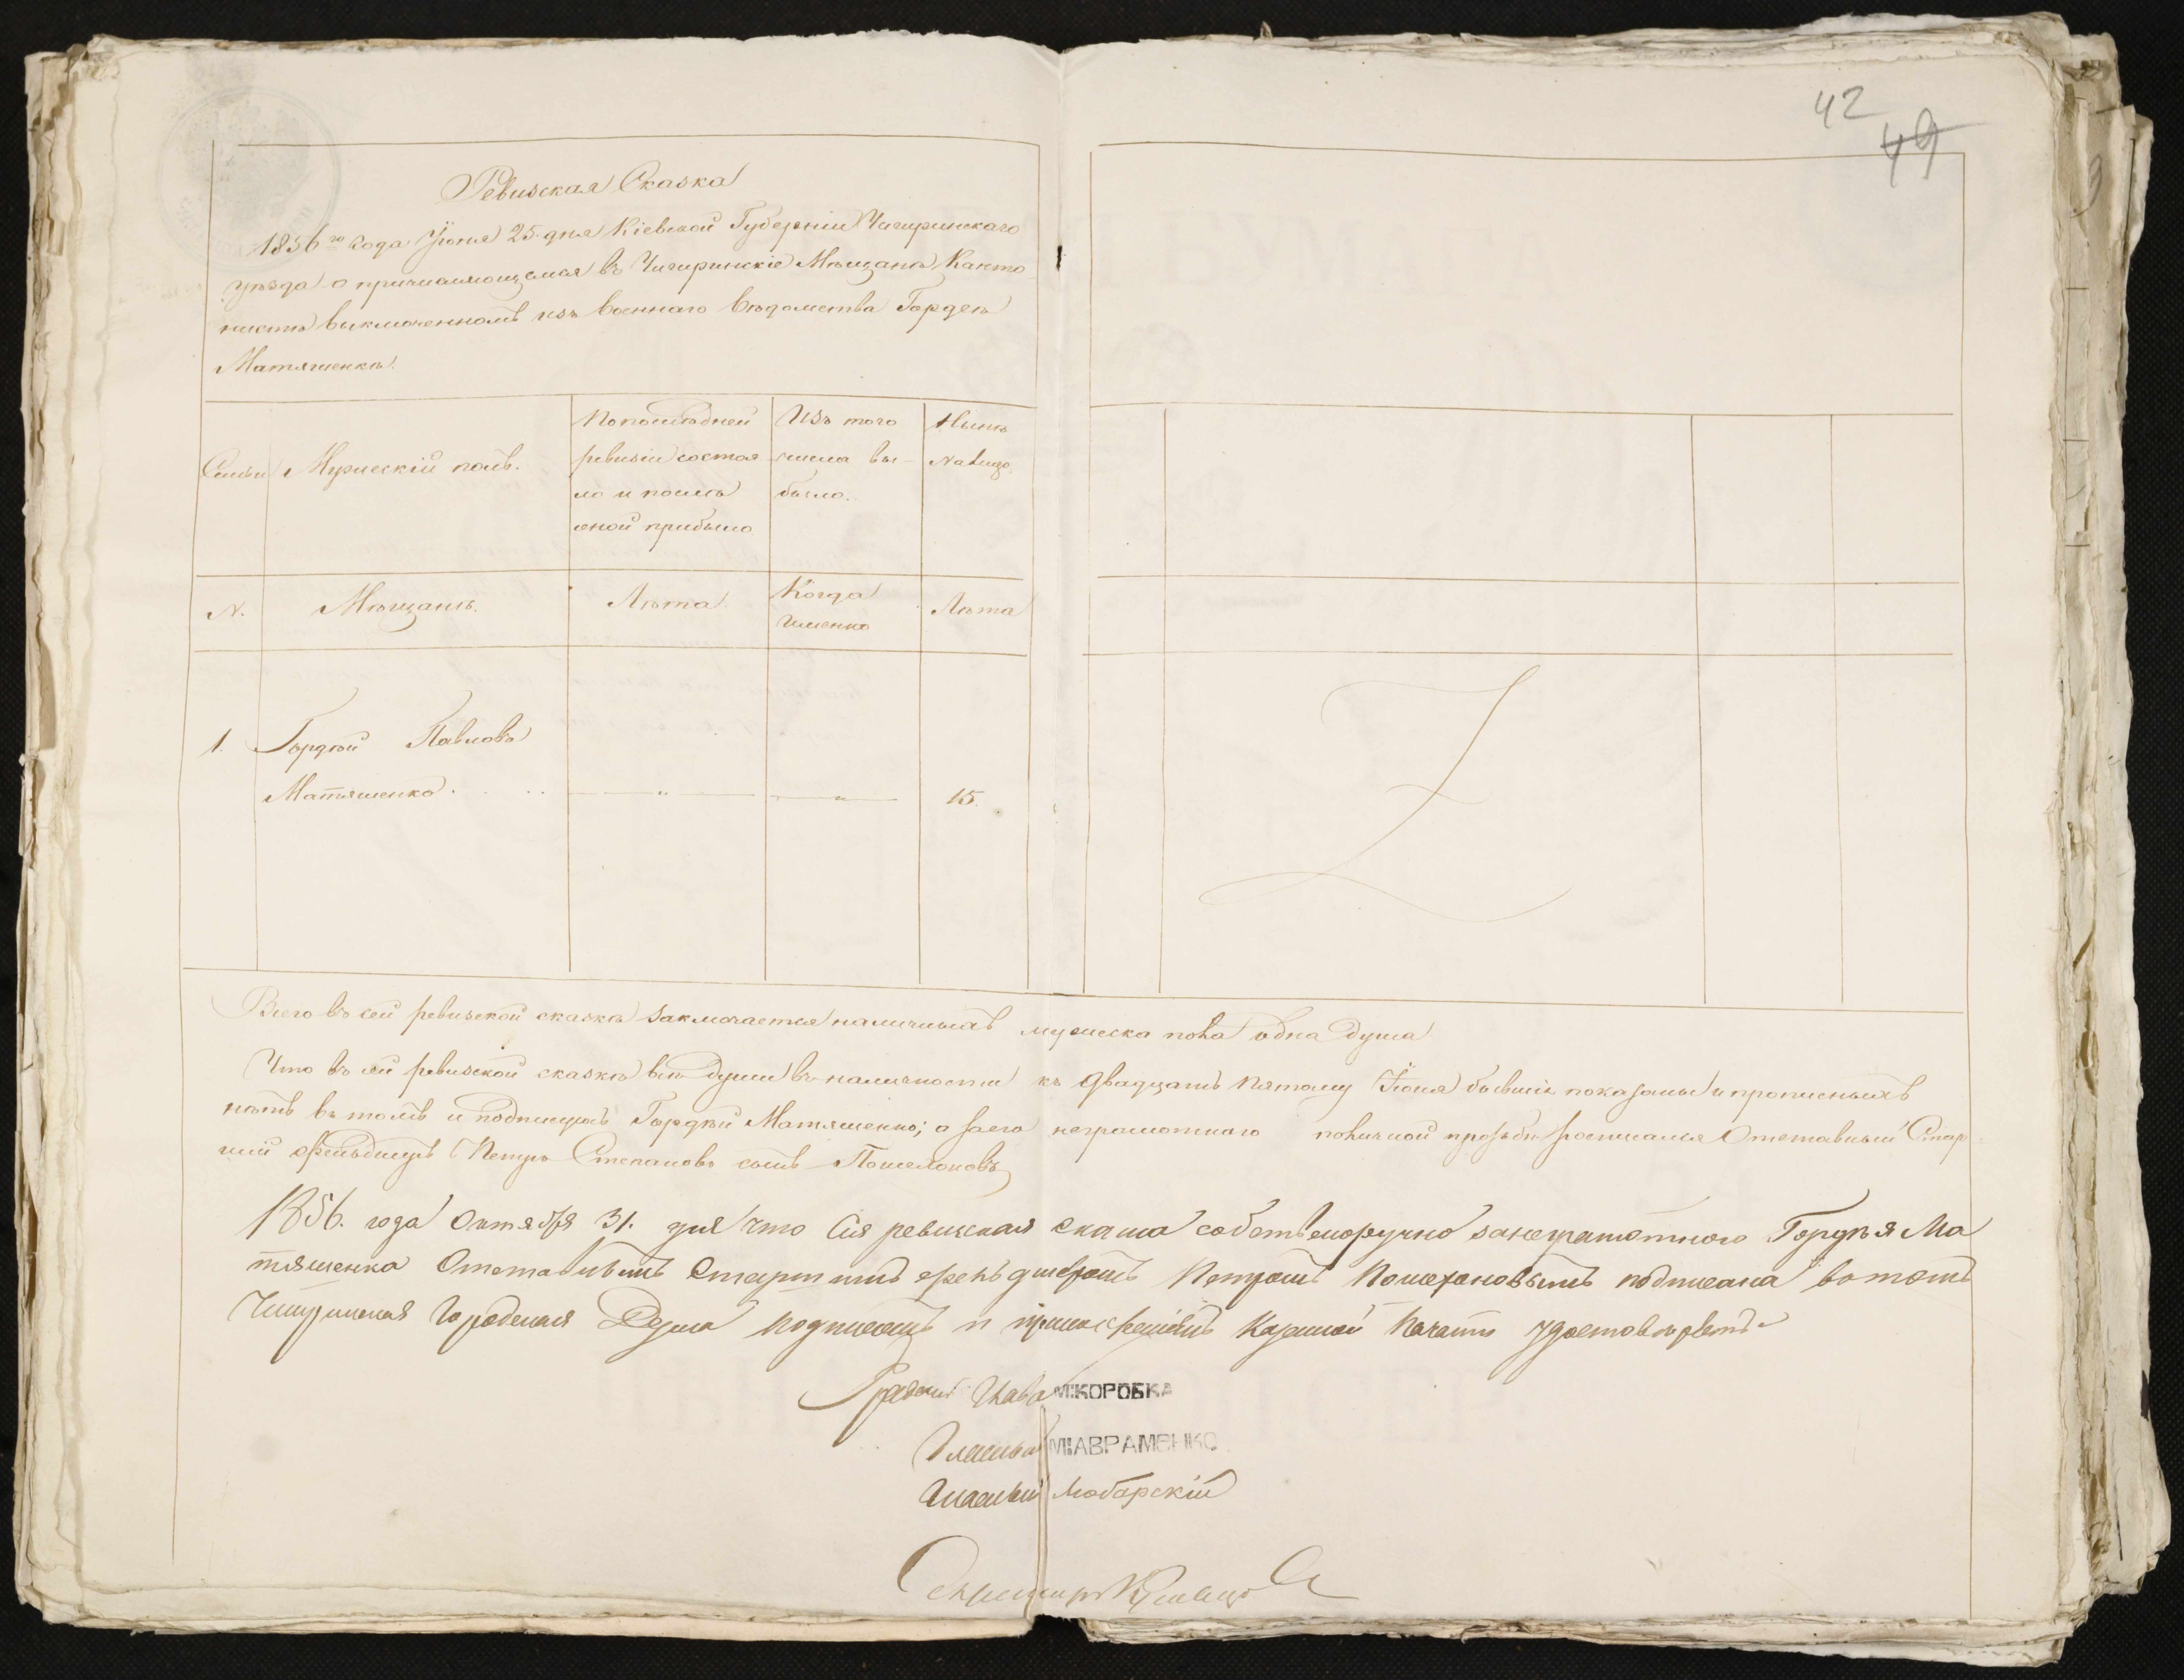 42
49
Ревизская Сказка
1856го года Іюня 25 дня Кіевской Губерніи Чигиринскаго
уѣзда о причисляющемся въ Чигиринскіе Мѣщане Канто
нистѣ выключенномъ изъ военнаго вѣдомства Гордеѣ
Матяшенкѣ.
Семьи
Мужескій полъ.
По последней
ревизіи состоя
ло и послѣ
оной прибыло
Изъ того
числа вы-
было.
Нынѣ
на лицо
N.
Мѣщане.
Лѣта
Когда
именно
Лѣта
1. Гордѣй Павловъ
Матяшенко. — " — — " — 15.
Всего въ сей ревизской сказкѣ заключается наличныхъ мужеска пола одна душа
Что въ сей ревизской сказкѣ всѣ души въ наличности къ двадцать пятому Іюня бывшія показаны и прописныхъ
нѣтъ въ томъ и подпишусь Гордѣй Матяшенко; а за его неграмотнаго по личной прозьбѣ росписался Отставный Стар
шій фельдшеръ Петръ Степановъ сынъ
1856. года Октября 31. дня что сія ревизская сказка собственоручно за неграмотного Гордѣя Ма
тяшенка Отставнымъ Старшимъ фельдшеромъ Петромъ подписана въ томъ
Чигиринская Городская Дума подписомъ и приложеніемъ Казенной Печати удостовѣряетъ
Градский Глава М:КОРОБКА
Гласный М:АВРАМЕНКО
Гласный
Секретарь